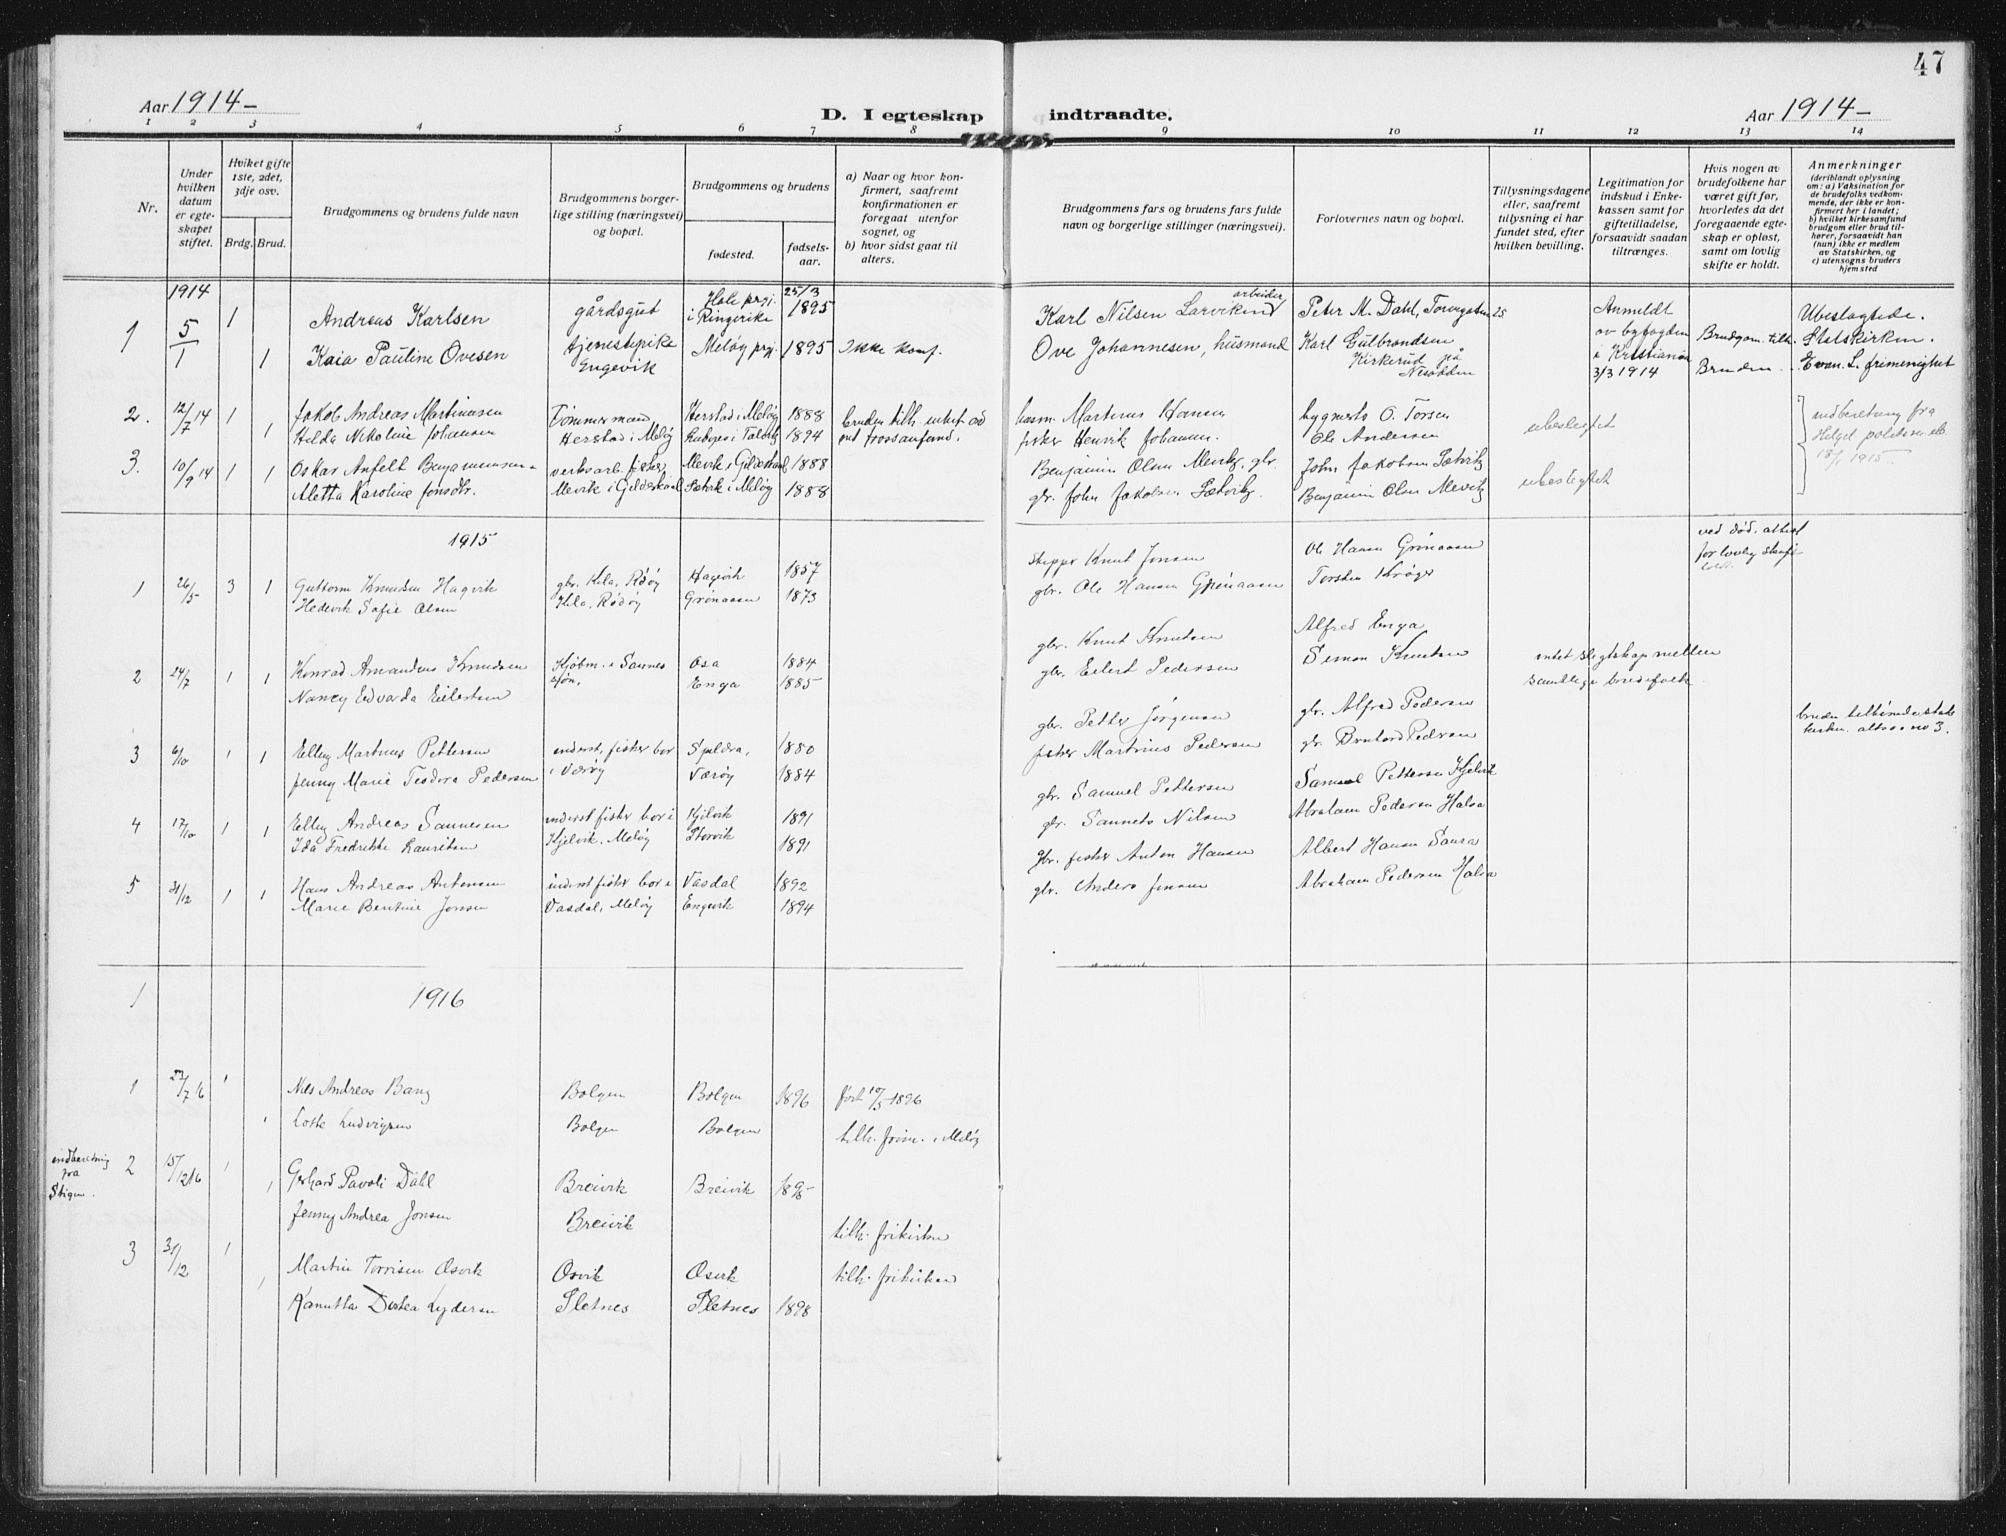 47
Aar 1914 –
D. I egteskap indtraadte.
Aar 1914 –
1 2 3 4 5 6 7 8 9 10 11 12 13 14
Nr.
Under hvilken datum er egteskapet stiftet.
Hviket gifte 1ste, 2det, 3dje osv.
Brdg. Brud.
Brudgommens og brudens fulde navn
Brudgommens borgerlige stilling (næringsvei) og bopæl.
Brudgommens og brudens
fødested.
fødselsaar.
a) Naar og hvor konfirmert, saafremt konfirmationen er foregaat utenfor sognet, og
b) hvor sidst gaat til alters.
Brudgommens fars og brudens fars fulde navn og borgerlige stillinger (næringsvei).
Forlovernes navn og bopæl.
Tillysningsdagene eller, saafremt tillysning ei har fundet sted, efter hvilken bevilling.
Legitimation for indskud i Enkekassen samt for giftetilladelse, forsaavidt saadan tiltrænges.
Hvis nogen av brudefolkene har været gift før, hvorledes da det foregaaende egteskap er opløst, samt om lovlig skifte er holdt.
Anmerkninger (deriblandt oplysning om: a) Vaksination for de brudefolks vedkommende, der ikke er konfirmert her i landet; b) hvilket kirkesamfund brudgom eller brud tilhører, forsaavidt han (hun) ikke er medlem av Statskirken, og c) utensogns bruders hjemsted
1914
1 5/1 1 Andreas Karlsen gårdsgut Hole prgj. i Ringerike 25/3 1895 Karl Nilsen Larvikend arbeider Peter M. Dahl, Torvegaten 25 Anmeldt av byfogden i Kristiania 3/3 1914 Brudgom. tilh. Ubeslagtede. Statskirken.
1 Kaia Pauline Ovesen tjenestepike Engevik Meløy prgj. 1895 Ikke konf. Ove Johannesen, husmand Karl Gulbrandsen Kirkerud på Nesodden Bruden Evan. L. frimenighet
2. 12/7 14 1 Jakob Andreas Martinusen Tømmermand Herstad i Meløy 1888 bruden tilh. husm. Martinus Hansen bygnerts O. Torsen ubeslegtet indberetning fra
1 Helda Nikoline Johansen Herstad i Meløy 1894 fisker Henrik Johansen. Ole Andersen Helgel. politim.
18/1 1915.
3. 10/9 14 1 1 Oskar Anfelt Benjaminsen verksarb. fisker Mevik i Gildeskaal 1888 Benjamin Olsen Mevik, gbr. John Jakobsen Sætvik ubeslegtet
Aletta Karoline Jonsdtr. Mevik i Gildeskaal Sætvik i Meløy 1888 gbr. John Jakobsen Sætvik. Benjamin Olsen Mevik
1915
1 26/5 3 1 Guttorm Knudsen Hagvik gbr. Hila, Rødøy Hagevik 1857 skipper Knut Jonsen Ole Hansen Grønaasen ved død, attest for lovlig skifte
Hedevik Sofie Olsen Hila, Rødøy Grønaasen 1873 gbr. Ole Hansen Grønaasen Torsten Krøger
2 24/7 1 1 Konrad Amandus Knudsen Kjøbm. i Sannes sjøn. Osa 1884 gbr. Knut Knutsen Alfred Enga intet slegtskap mellem
Nancy Edvarda Eilertsen Enga 1885 gbr. Eilert Pedersen Simon Knutsen samtlige brudefolk
3 6/10 1 1 Elling Martinus Pettersen inderst, fisker bor i Værøy Spildra, 1880 gbr. Petter Jørgensen gbr. Alfred Pedersen bruden tilhørende stats
Jenny Marie Teodora Pedersen Værøy 1884 fisker Martinus Pedersen gbr. Bernhard Pedersen kirken. altsaa no 3.
4 17/10 1 1 Elling Andreas Sannesen inderst fisker bor i Kjelvik 1891 gbr. Samuel Pettersen Samuel Pettersen Kjelvik
Ida Fredrikke Lauritsen Kjelvik, Meløy Storvik 1891 gbr. Sannets Nilsen Abraham Pedersen Halsa
5 31/12 1 1 Hans Andreas Antonsen inderst fisker bor i Vasdal 1892 gbr. fisker Anton Hansen Albert Hansen Saura
Marie Bentine Jonsen Vasdal, Meløy Engevik 1894 gbr. Anders Jensen Abraham Pedersen Halsa
1 1916
1 23/7 16 1 Nils Andreas Bang Bolgen Bolgen 1896 født 10/5 1896
1 Lotte Ludvigsen Bolgen Bolgen tilh. frim. i Meløy
indberetning fra Skigen. 2 15/12 16 1 Gerhard Pavoli Dahl Breivik Breivik
1 Jenny Andrea Jonsen Breivik tilh. frikirken
3 31/12 1 Martin Torrisen Osvik Osvik Osvik tilh. frikirken
1 Kanutta Dortea Lydersen Sletnes Sletnes 1898